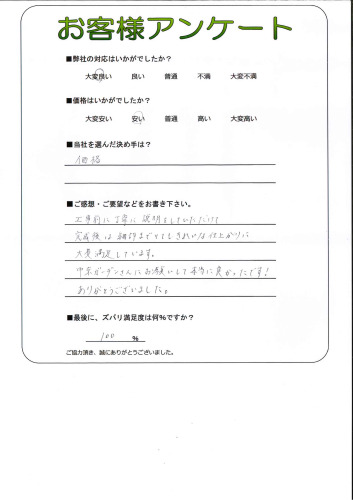 お客様アンケート
■弊社の対応はいかがでしたか？
大変良い 良い 普通 不満 大変不満
■価格はいかがでしたか？
大変安い 安い 普通 高い 大変高い
■当社を選んだ決め手は？
価格
■ご感想・ご要望などをお書き下さい。
工事前に丁寧に説明をしていただけて
完成後は細部までとてもきれいな仕上がりに
大変満足しています。
中京ガーデンさんにお願いして本当に良かったです！
ありがとうございました。
■最後に、ズバリ満足度は何%ですか？
100 %
ご協力頂き、誠にありがとうございました。